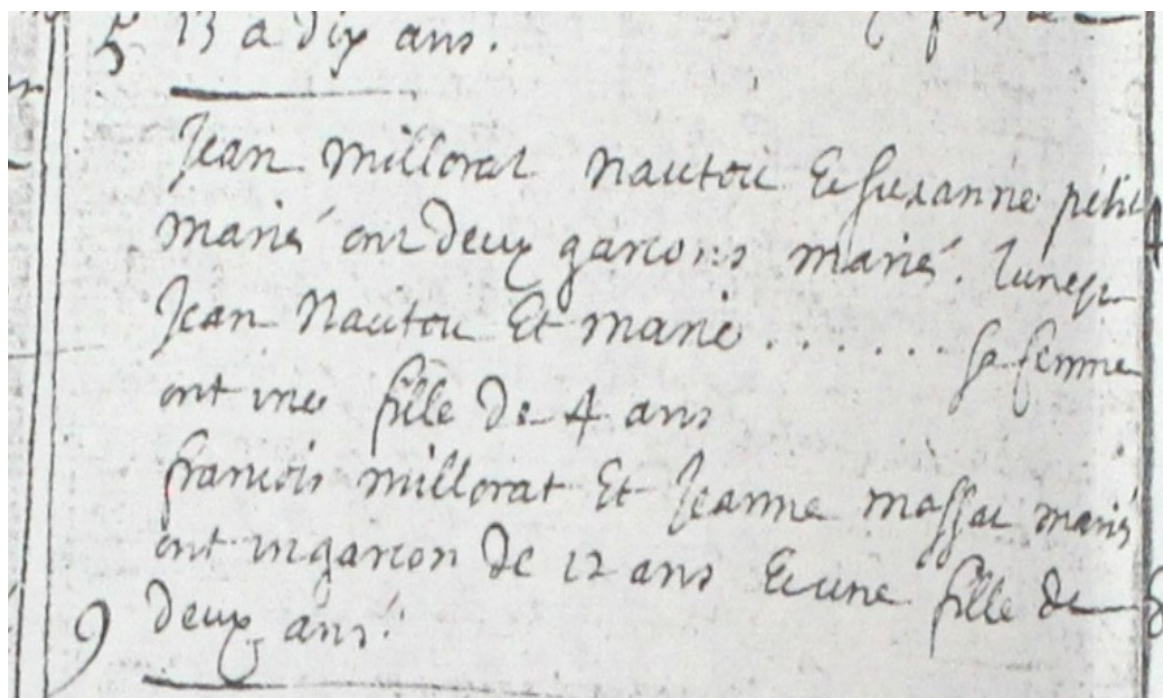 5 13 a dix ans.
Jean millorat nautou & Suzanne petit
mariés ont deux garcons mariés. lun est
Jean Nautou Et marie ....... sa femme
ont une fille de 4 ans
francois millorat Et Jeanne massac mariés
ont un garcon de 12 ans & une fille de
9 deux ans.